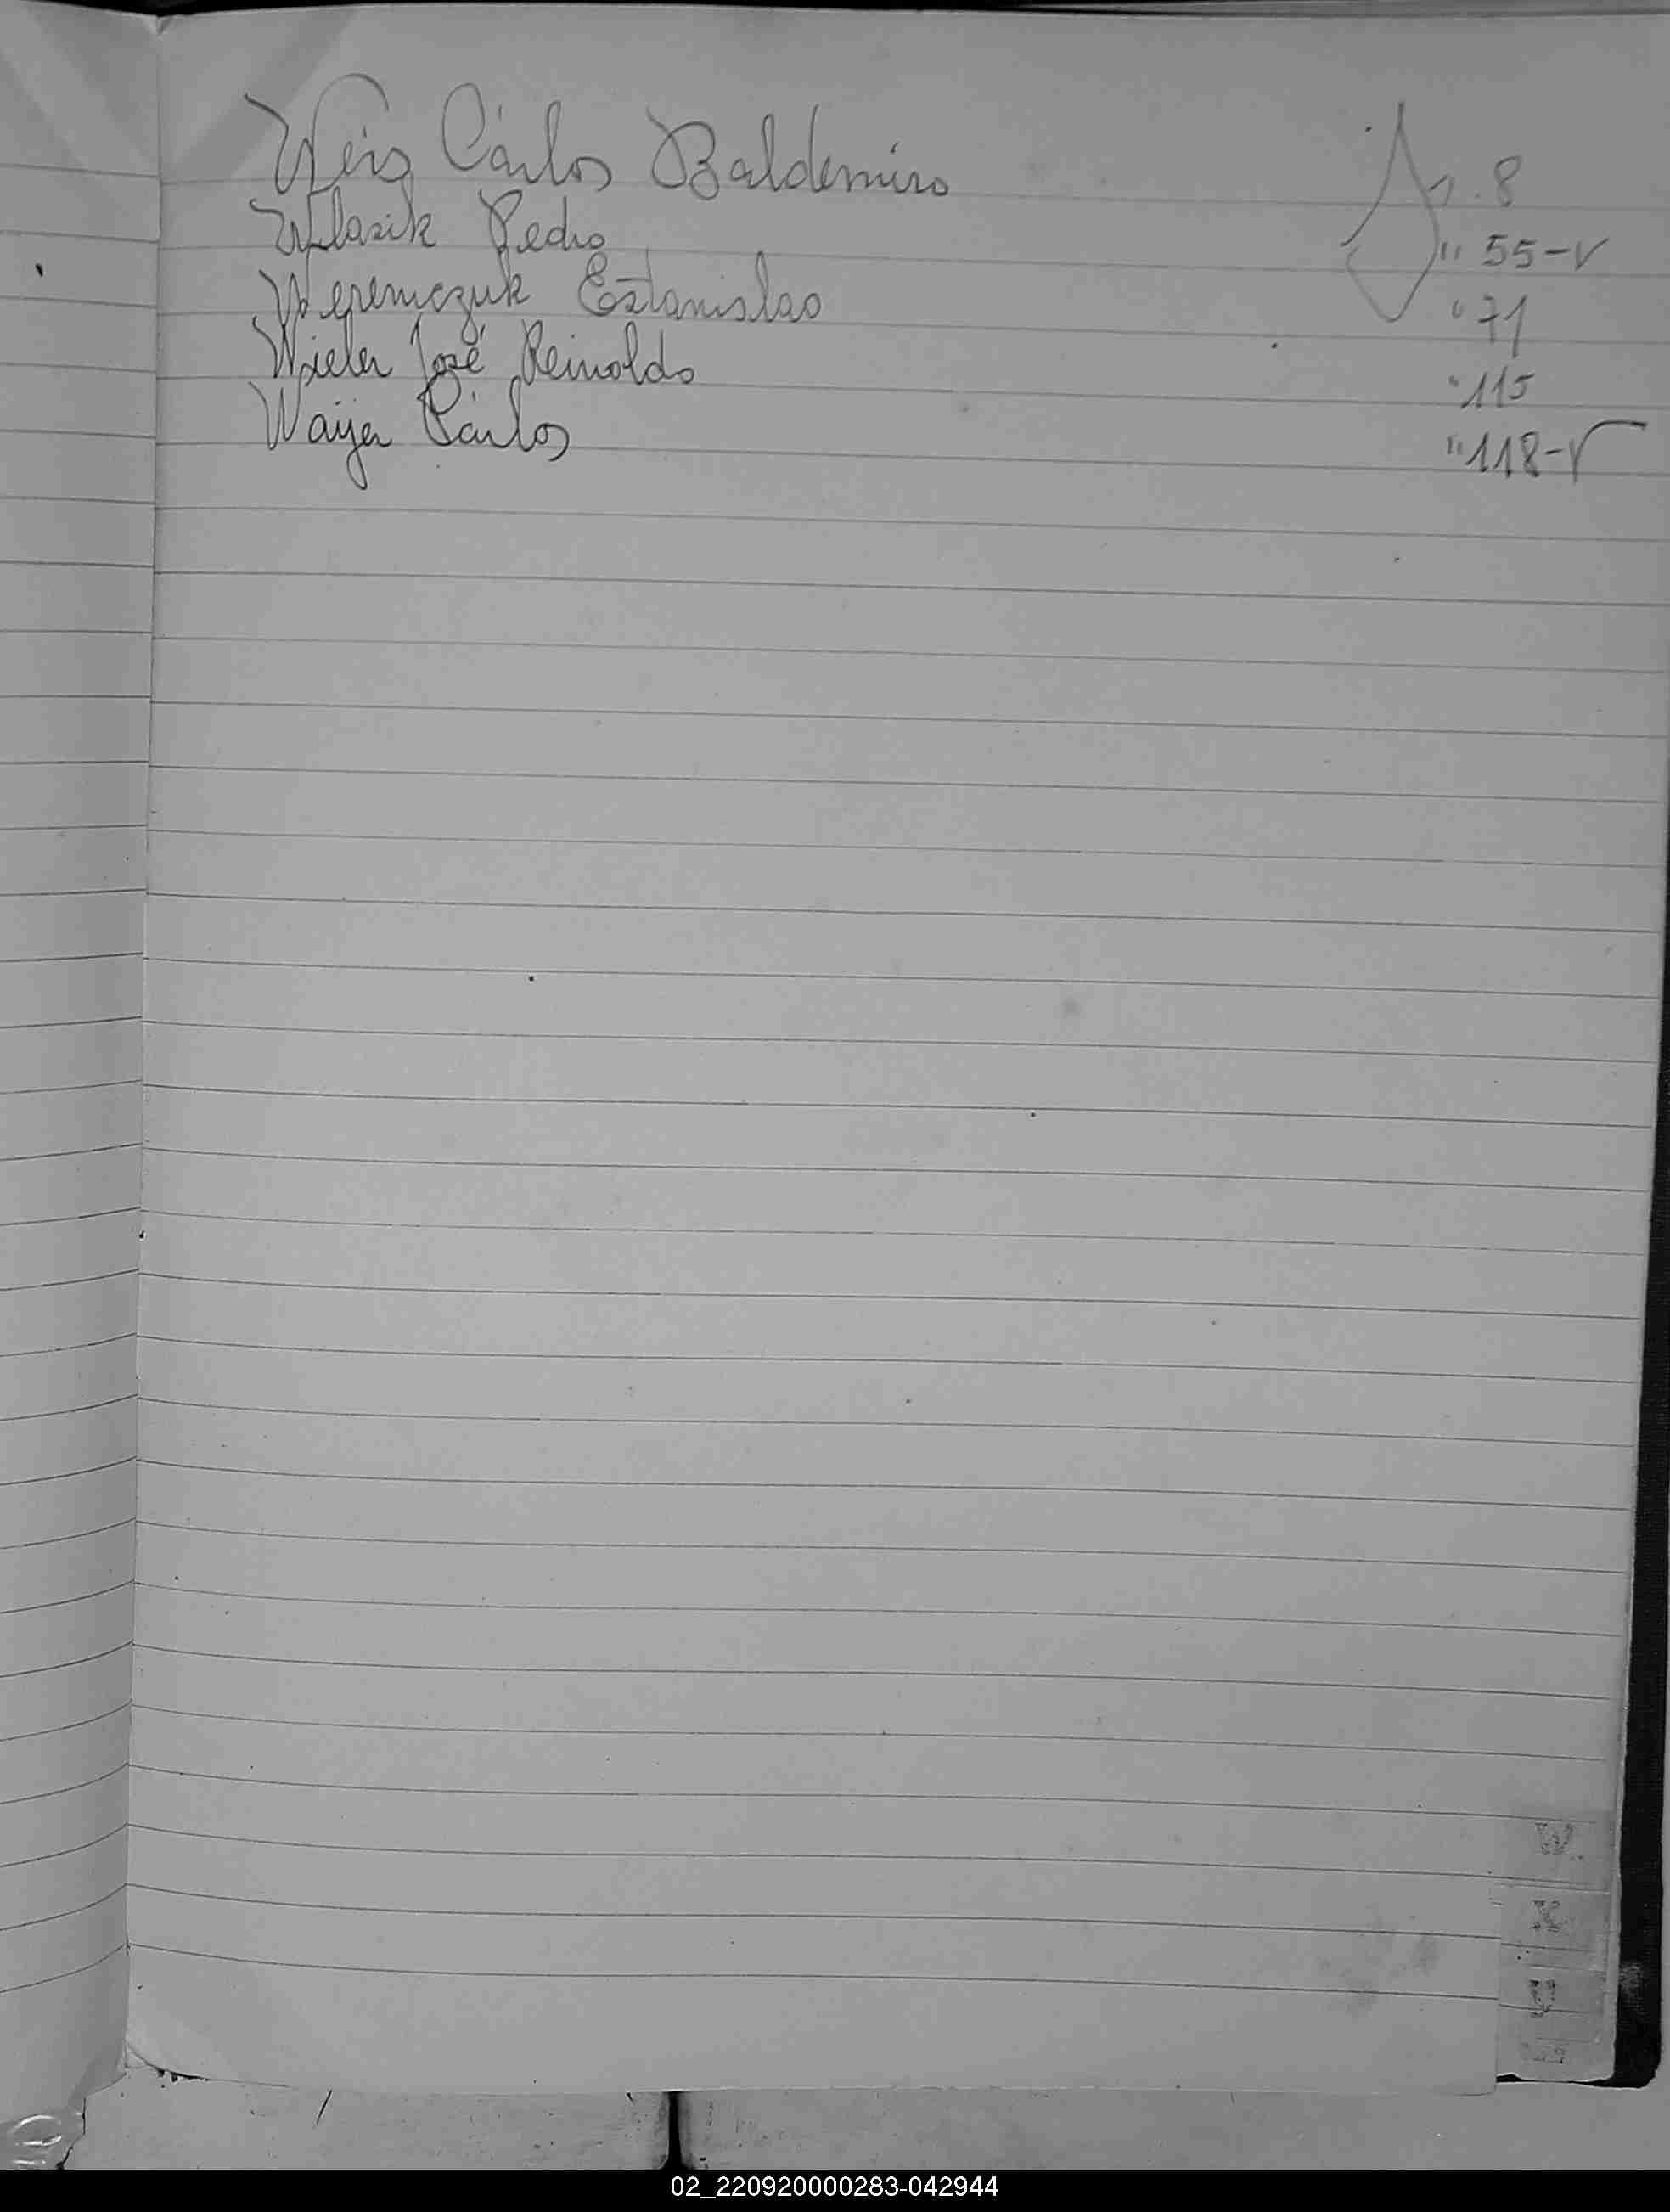 Weis Carlos Baldemiro f. 8
Wlasik Pedro " 55-v
Weremczuk Estanislao " 71
Wieler José Reinoldo " 115
Wayer Carlos " 118-v
W
02_220920000283-042944